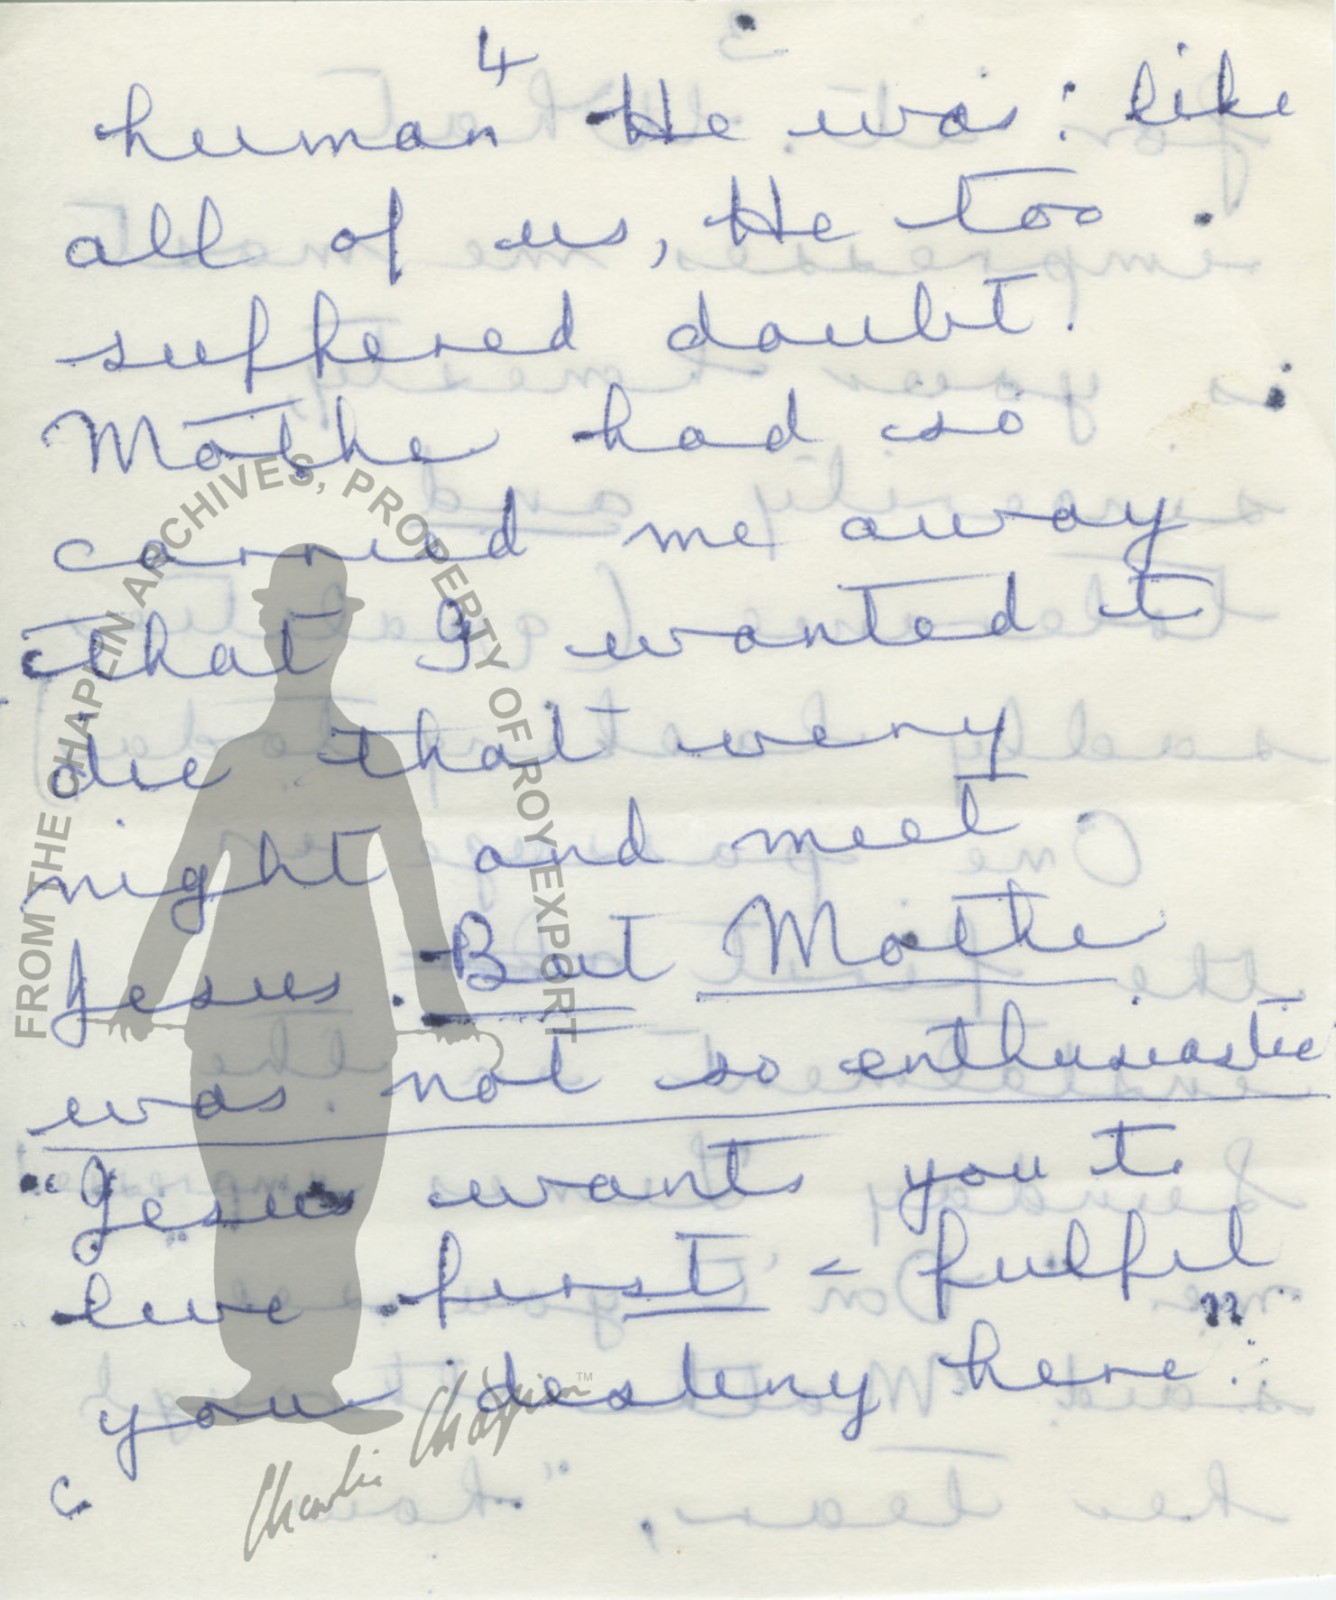 4
human He was: like
all of us, He too
suffered doubt.
Mothe had so
carried me away
that I wanted t
die that very
night and meet
Jesus. But Mothe
was not so enthusiastic
"Jesus wants you t
live first - fulfil
your destiny here."
FROM THE CHAPLIN ARCHIVES, PROPERTY OF ROY EXPORT
Charlie Chaplin™